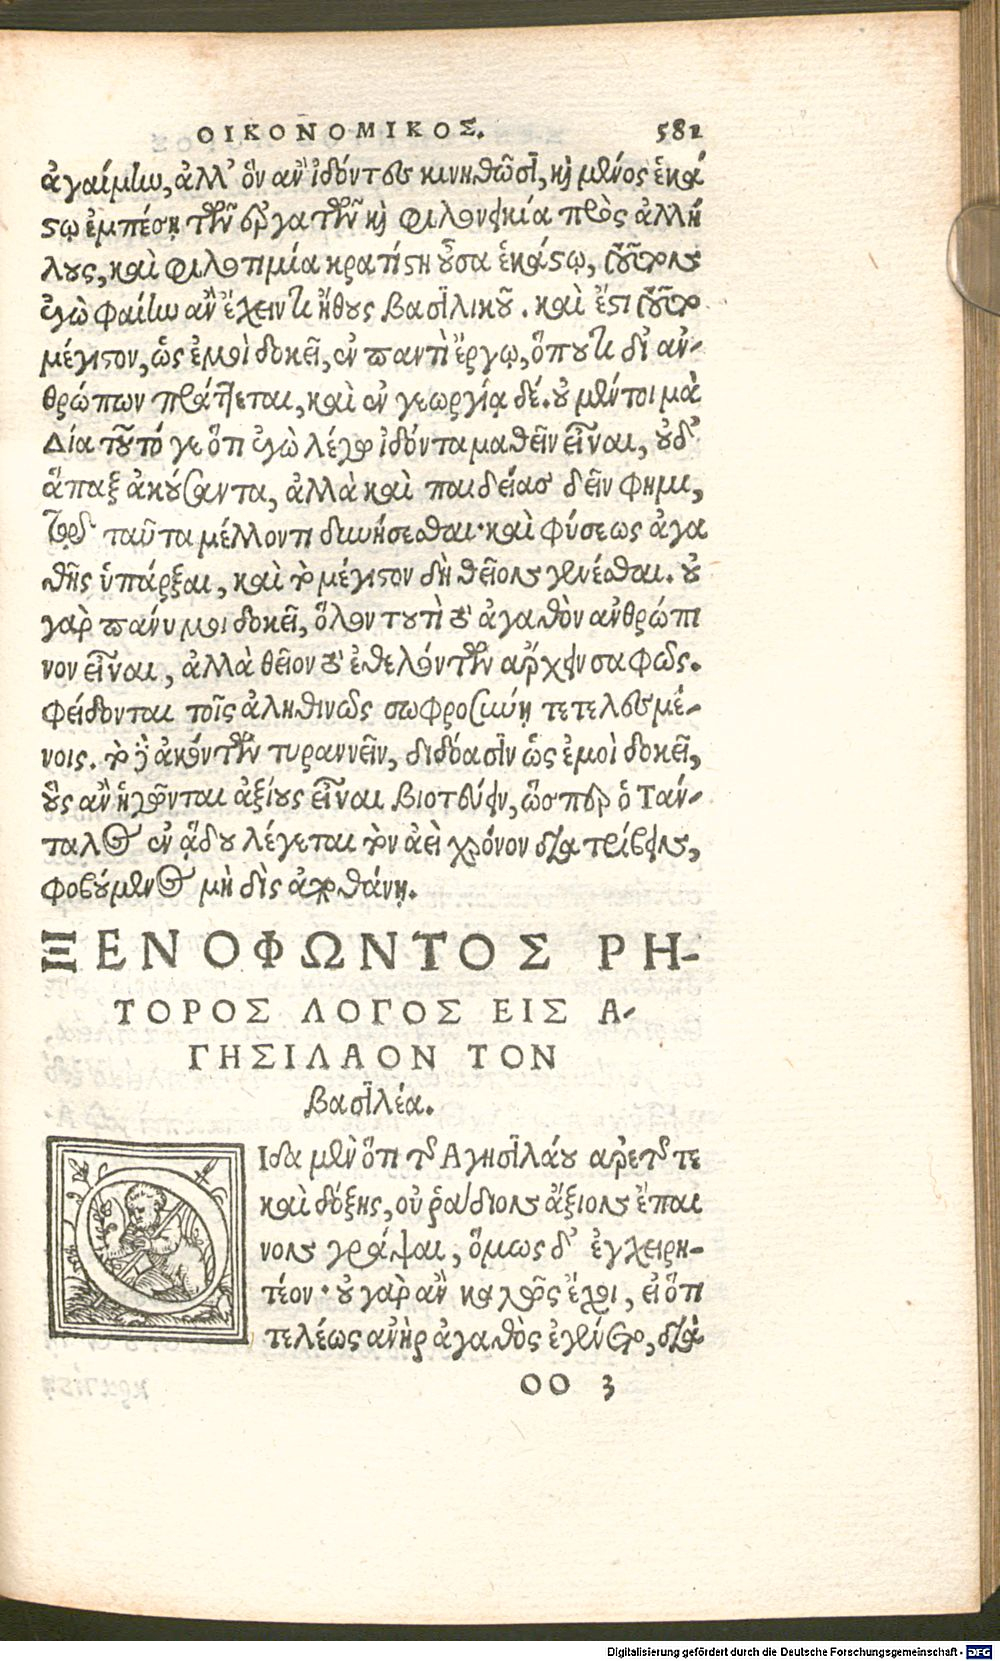 ΟΙΚΟΝΟΜΙΚΟΣ. 581
ἀγαίμην, ἀλλ' ὃν ἂν ἰδόντες κινηθῶσι, καὶ μένος ἑκά
στῳ ἐμπέσῃ τῶν ἐργατῶν καὶ φιλονεικία πρὸς ἀλλή
λους, καὶ φιλοτιμία κρατίστη οὖσα ἑκάστῳ, τοῦτον
ἐγὼ φαίην ἂν ἔχειν τι ἤθους βασιλικοῦ. καὶ ἔστι τοῦτο
μέγιστον, ὡς ἐμοὶ δοκεῖ, ἐν παντὶ ἔργῳ, ὅπου τι δι' ἀν-
θρώπων πράττεται, καὶ ἐν γεωργίᾳ δέ. οὐ μέντοι μὰ
Δία τοῦτό γε ὅτι ἐγὼ λέγω ἰδόντα μαθεῖν εἶναι, οὐδ'
ἅπαξ ἀκούσαντα, ἀλλὰ καὶ παιδείας δεῖν φημι,
ταῦτα μέλλοντι δυνήσεσθαι. καὶ φύσεως ἀγα
θῆς ὑπάρξαι, καὶ τὸ μέγιστον δὴ θεῖον γενέσθαι. οὐ
γὰρ πάνυ μοι δοκεῖ, ὅλον τουτὶ τὸ ἀγαθὸν ἀνθρώπι
νον εἶναι, ἀλλὰ θεῖον τὸ ἐθελόντων ἄρχειν σαφῶς.
φείδονται τοῖς ἀληθινῶς σωφροσύνῃ τετελεσμέ-
νοις. τὸ δὲ ἀκόντων τυραννεῖν, διδόασιν ὡς ἐμοὶ δοκεῖ,
οὓς ἂν ἡγῶνται ἀξίους εἶναι βιοτεύειν, ὥσπερ ὁ Ταν-
ταλος ἐν ᾅδου λέγεται τὸν ἀεὶ χρόνον διατρίβειν,
φοβούμενος μὴ δὶς ἀποθάνῃ.
ΞΕΝΟΦΩΝΤΟΣ ΡΗ-
ΤΟΡΟΣ ΛΟΓΟΣ ΕΙΣ Α-
ΓΗΣΙΛΑΟΝ ΤΟΝ
βασιλέα.
ΟΙδα μὲν ὅτι τῆς Ἀγησιλάου ἀρετῆς τε
καὶ δόξης, οὐ ῥᾴδιον ἄξιον ἔπαι
νον γράψαι, ὅμως δ' ἐγχειρη-
τέον. οὐ γὰρ ἂν καλῶς ἔχοι, εἰ ὅτι
τελέως ἀνὴρ ἀγαθὸς ἐγένετο, διὰ
ΟΟ 3
Digitalisierung gefördert durch die Deutsche Forschungsgemeinschaft - DFG